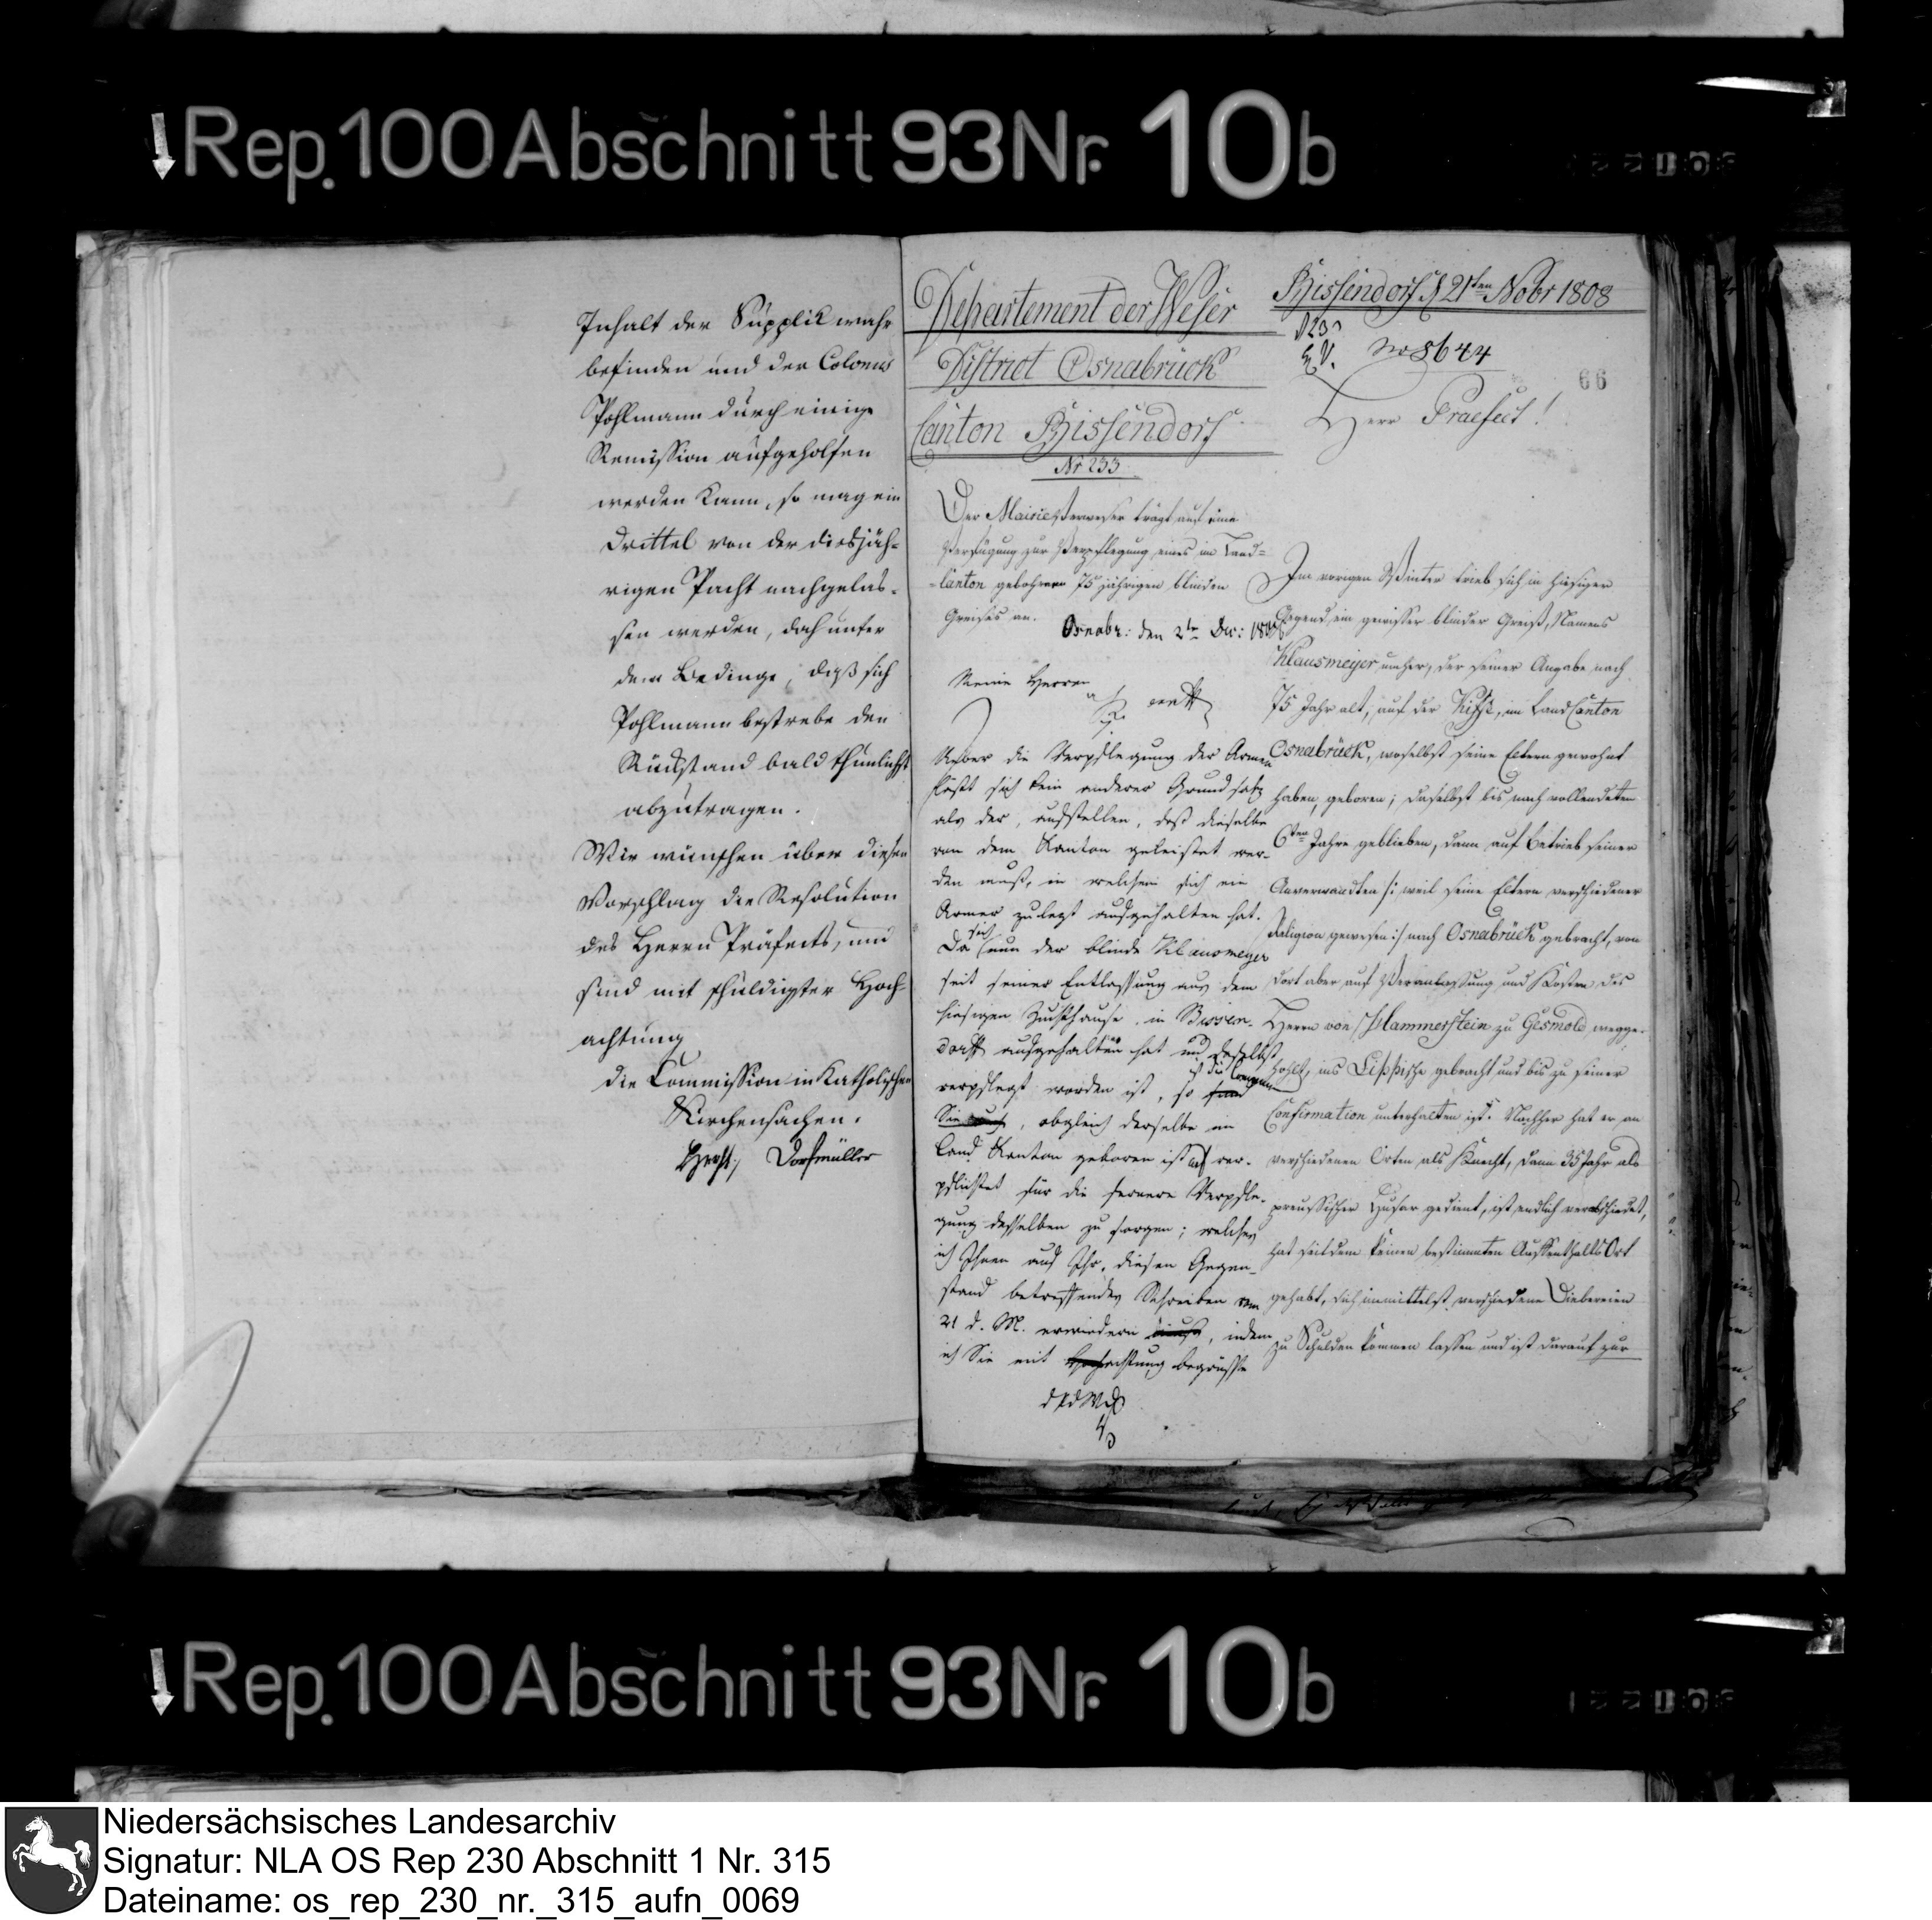 Rep. 100 Abschnitt 93 Nr. 10b
Inhalt der Supplik wahr
befinden und der Colonus
Pohlmann durch einige
Remission aufgeholfen
werden kann, so mag ein
Drittel von der diesjäh-
rigen Pacht nachgelas-
sen werden, doch unter
dem Bedinge, daß sich
Pohlmann bestrebe den
Rückstand bald thunlichst
abzutragen.
Wir wünschen über diesen
Vorschlag die Resolution
des Herrn Präfects, und
sind mit schuldigster Hoch-
achtung
die Commission in Katholischen
Kirchensachen.
Dorfmüller
Departement der Weser
District Osnabrück
Canton Bissendorf
Nr 233
Der Mairieverweser trägt auf eine
Verfügung zur Verpflegung eines im Land-
Canton gebohrnen 75 jährigen blinden
Greises an.
Osnabr: den 2tn Dec: 1808
Meine Herren
Ueber die Verpflegung der Armen
läßt sich kein anderer Grundsatz
als der, aufstellen, daß dieselbe
von dem Kanton geleistet wer-
den muß, in welchem sich ein
Armer zulezt aufgehalten hat.
Da sich nun der blinde Klausmeyer
seit seiner Entlassung aus dem
hiesigen Zuchthause, in Bissen-
dorff aufgehalten hat und daselbst
verpflegt worden ist, so ist die Commun
, obgleich derselbe im
Land Kanton geboren ist ver-
pflichtet für die fernere Verpfle-
gung desselben zu sorgen; welches
ich Ihnen auf Ihr, diesen Gegen-
stand betreffendes Schreiben vom
21 d. M. erwiedern, indem
ich Sie mit Hochachtung begrüsse
d P d W D
Bissendorf d 21ten Nobr 1808
No 8644
66
Herr Praefect!
Im vorigen Winter trieb sich in hiesiger
Gegend, ein gewisser blinder Greiß, Namens
Klausmeyer umher, der seiner Angabe nach
75 Jahr alt, auf der Hisse, im Land Canton
Osnabrück, woselbst seine Eltern gewohnt
haben, geboren; daselbst bis nach vollendeten
6ten Jahre geblieben, dann auf Betrieb seiner
Anverwandten /: weil seine Eltern verschiedener
Religion gewesen :/ nach Osnabrück gebracht, von
dort aber auf Veranlassung und Kosten des
Herrn von Hammerstein zu Gesmold wegge-
hohlt, ins Lippische gebracht und bis zu seiner
Confirmation unterhalten ist. Nachher hat er an
verschiedenen Orten als Knecht, dann 35 Jahr als
preussischer Husar gedient, ist endlich verabschiedet,
hat seitdem keinen bestimmten Aufenthalts Ort
gehabt, sich inmittelst verschiedene Diebereien
zu Schulden kommen lassen und ist darauf zur
Rep. 100 Abschnitt 93 Nr. 10b
Niedersächsisches Landesarchiv
Signatur: NLA OS Rep 230 Abschnitt 1 Nr. 315
Dateiname: os_rep_230_nr._315_aufn_0069